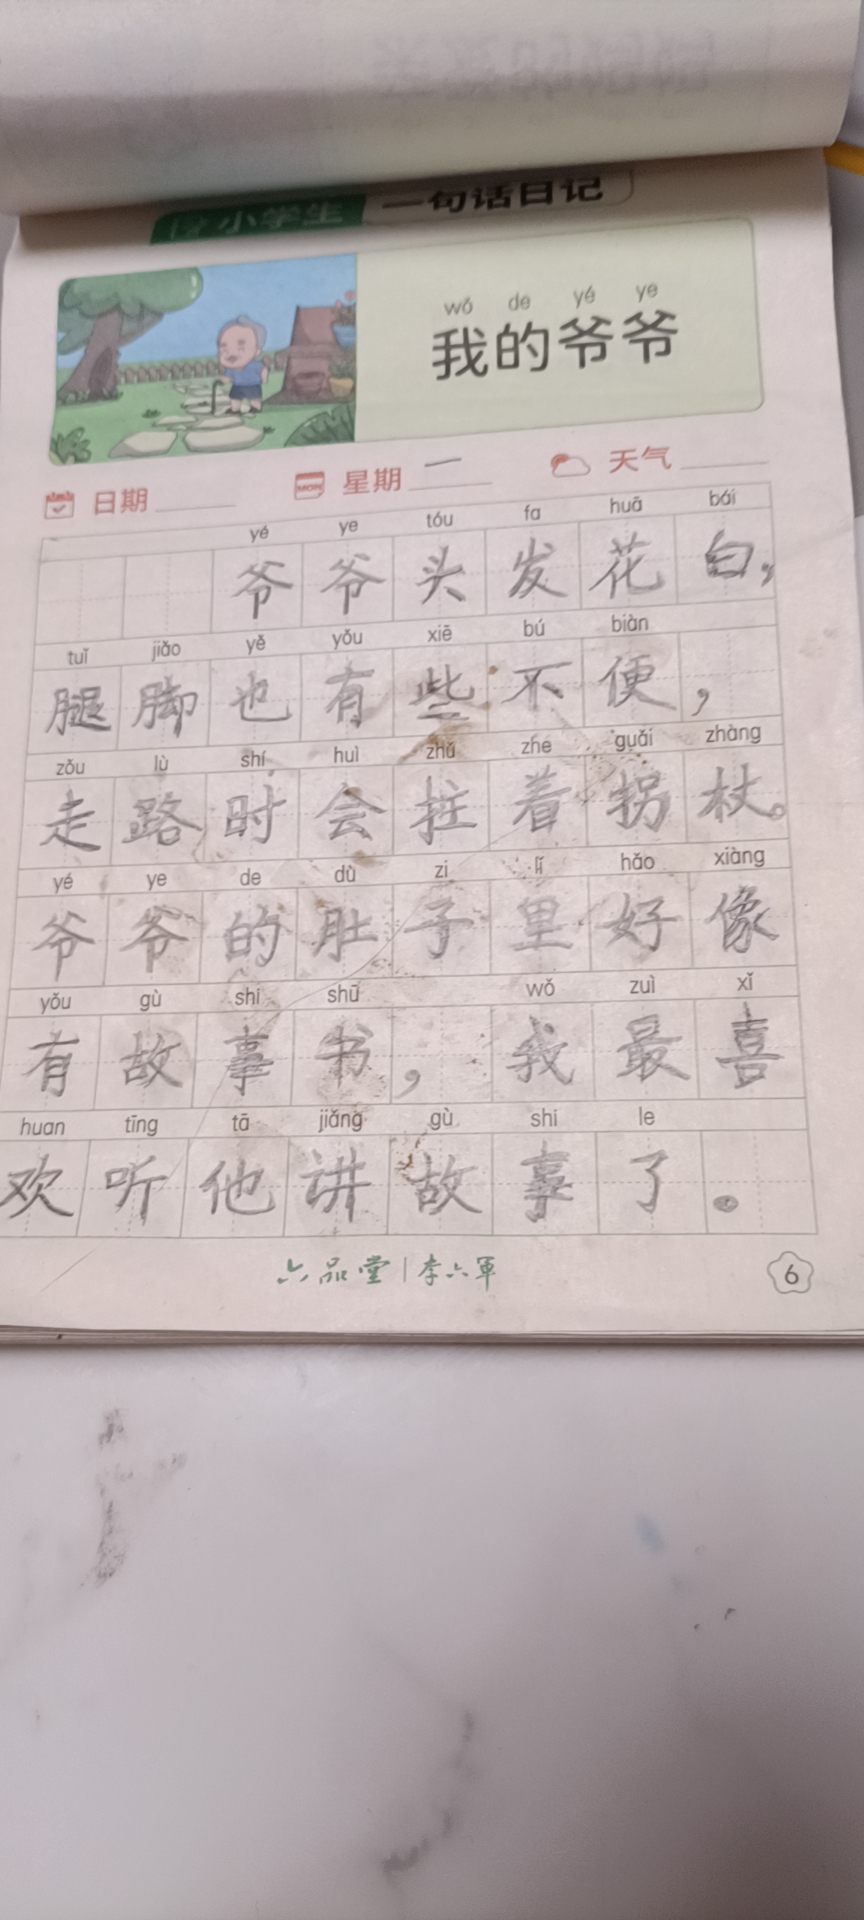 小学生 一句话日记
wǒ de yé ye
我的爷爷
日期 星期 一 天气
yé ye tóu fa huā bái
爷爷头发花白，
tuǐ jiǎo yě yǒu xiē bú biàn
腿脚也有些不便，
zǒu lù shí huì zhǔ zhe guǎi zhàng
走路时会拄着拐杖。
yé ye de dù zi lǐ hǎo xiàng
爷爷的肚子里好像
yǒu gù shi shū wǒ zuì xǐ
有故事书，我最喜
huan tīng tā jiǎng gù shi le
欢听他讲故事了。
六品堂 | 李六军
6